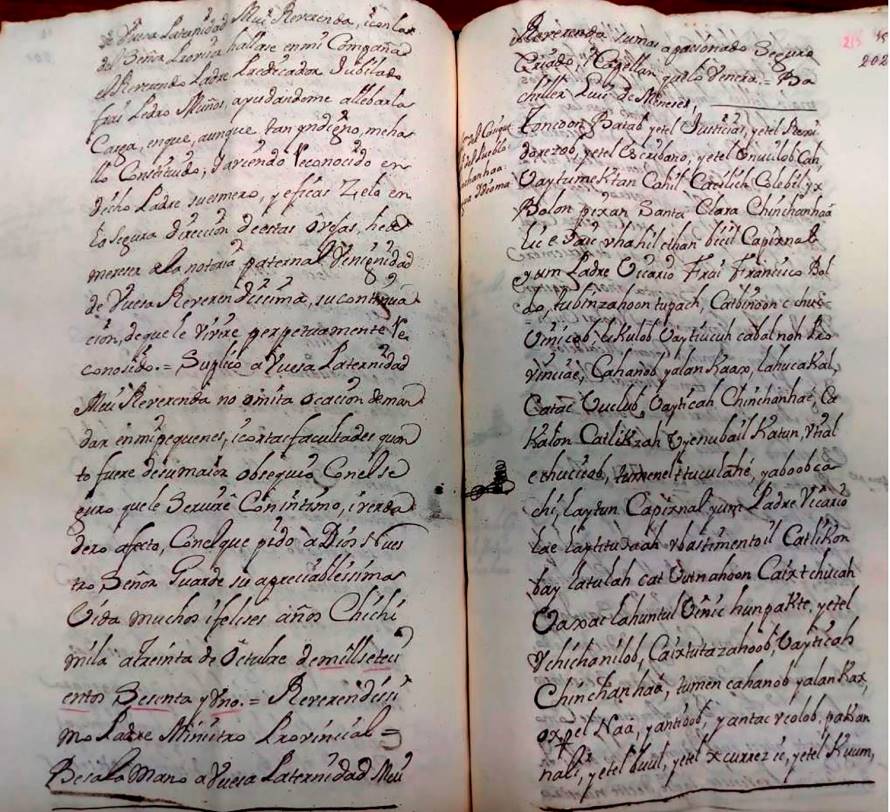 de Vuesa Paternidad Mui Reverenda, icon la
del Señor Provisor hallase en mi Compañia
el Reverendo Padre Predicador Jubilado
frai Pedro Muños, ayudandome allebar la
Carga, enque, aunque tan yndigno, meha
llo Constituido; I aviendo reconocido en
dicho Padre su esmero, y eficas Zelo en
la segura direccion de estas ovejas, hede
merecer ala notoria paternal Venignidad
de Vuesa Reverendisima, su continua
cion, de que le vivire perpetuamente re
conosido. = Suplico a Vuesa Paternidad
Mui Reverenda no omita ocacion de man
dar en mi pequenes, i cortas facultades quan
to fuere de su maior obsequio Con el se
guro que le Serviré Con intimo, i verda
dero afecto, Con el que pido a Dios Nues
tro Señor Guarde su apreciablissima
Vida muchos i felises años Chichi
mila atreinta de Octubre de mill seteci
entos Sesenta y Uno. = Reverendissi
mo Padre Ministro Provincial =
Besa la Mano a Vuesa Paternidad Mui
215
202
Reverenda su mas apacionado Seguro
Criado, i Capellan que lo Venera = Ba
chiller Luis de Meneses,
del Pueblo
Idioma
Toncoon Batab yetel Justicias, yetel Rexi
dorezob, yetel Escribano, yetel Cah,
Uay tumektan Cahil Ca Cilich Colebil yx
Bolon pixan Santa Clara Chinchanhaá
Lic c u hahil cthan bicil Capixnal
yum Padre Vicario Frai Francisco Bol
do, tubinzahoon tupach, Catbinoon
Uinicob, likulob Uay tiucuh cabal noh Pro
vinciae, Cahanob yalan Kaax, lahuca Kal,
Catac Uuclub, Uay ticah Chinchanhaé, Ca
Kalon Catlikzah Katun,
tumenel yaboob ca
chi, lay tun Capixnal yum Padre Vicario
Lae bastimentoil Catlikon
bay latulah cat Caix tchucah
lahuntul Uinic hunpakte, yetel
Uchichanilob, Caixtutazahoob, Uay ticah
Chinchanhaá, tumen cahanob yalan Kax,
oxpel Naa, yantiob, yantac
nali, yetel buul, yetel yetel Kuum,